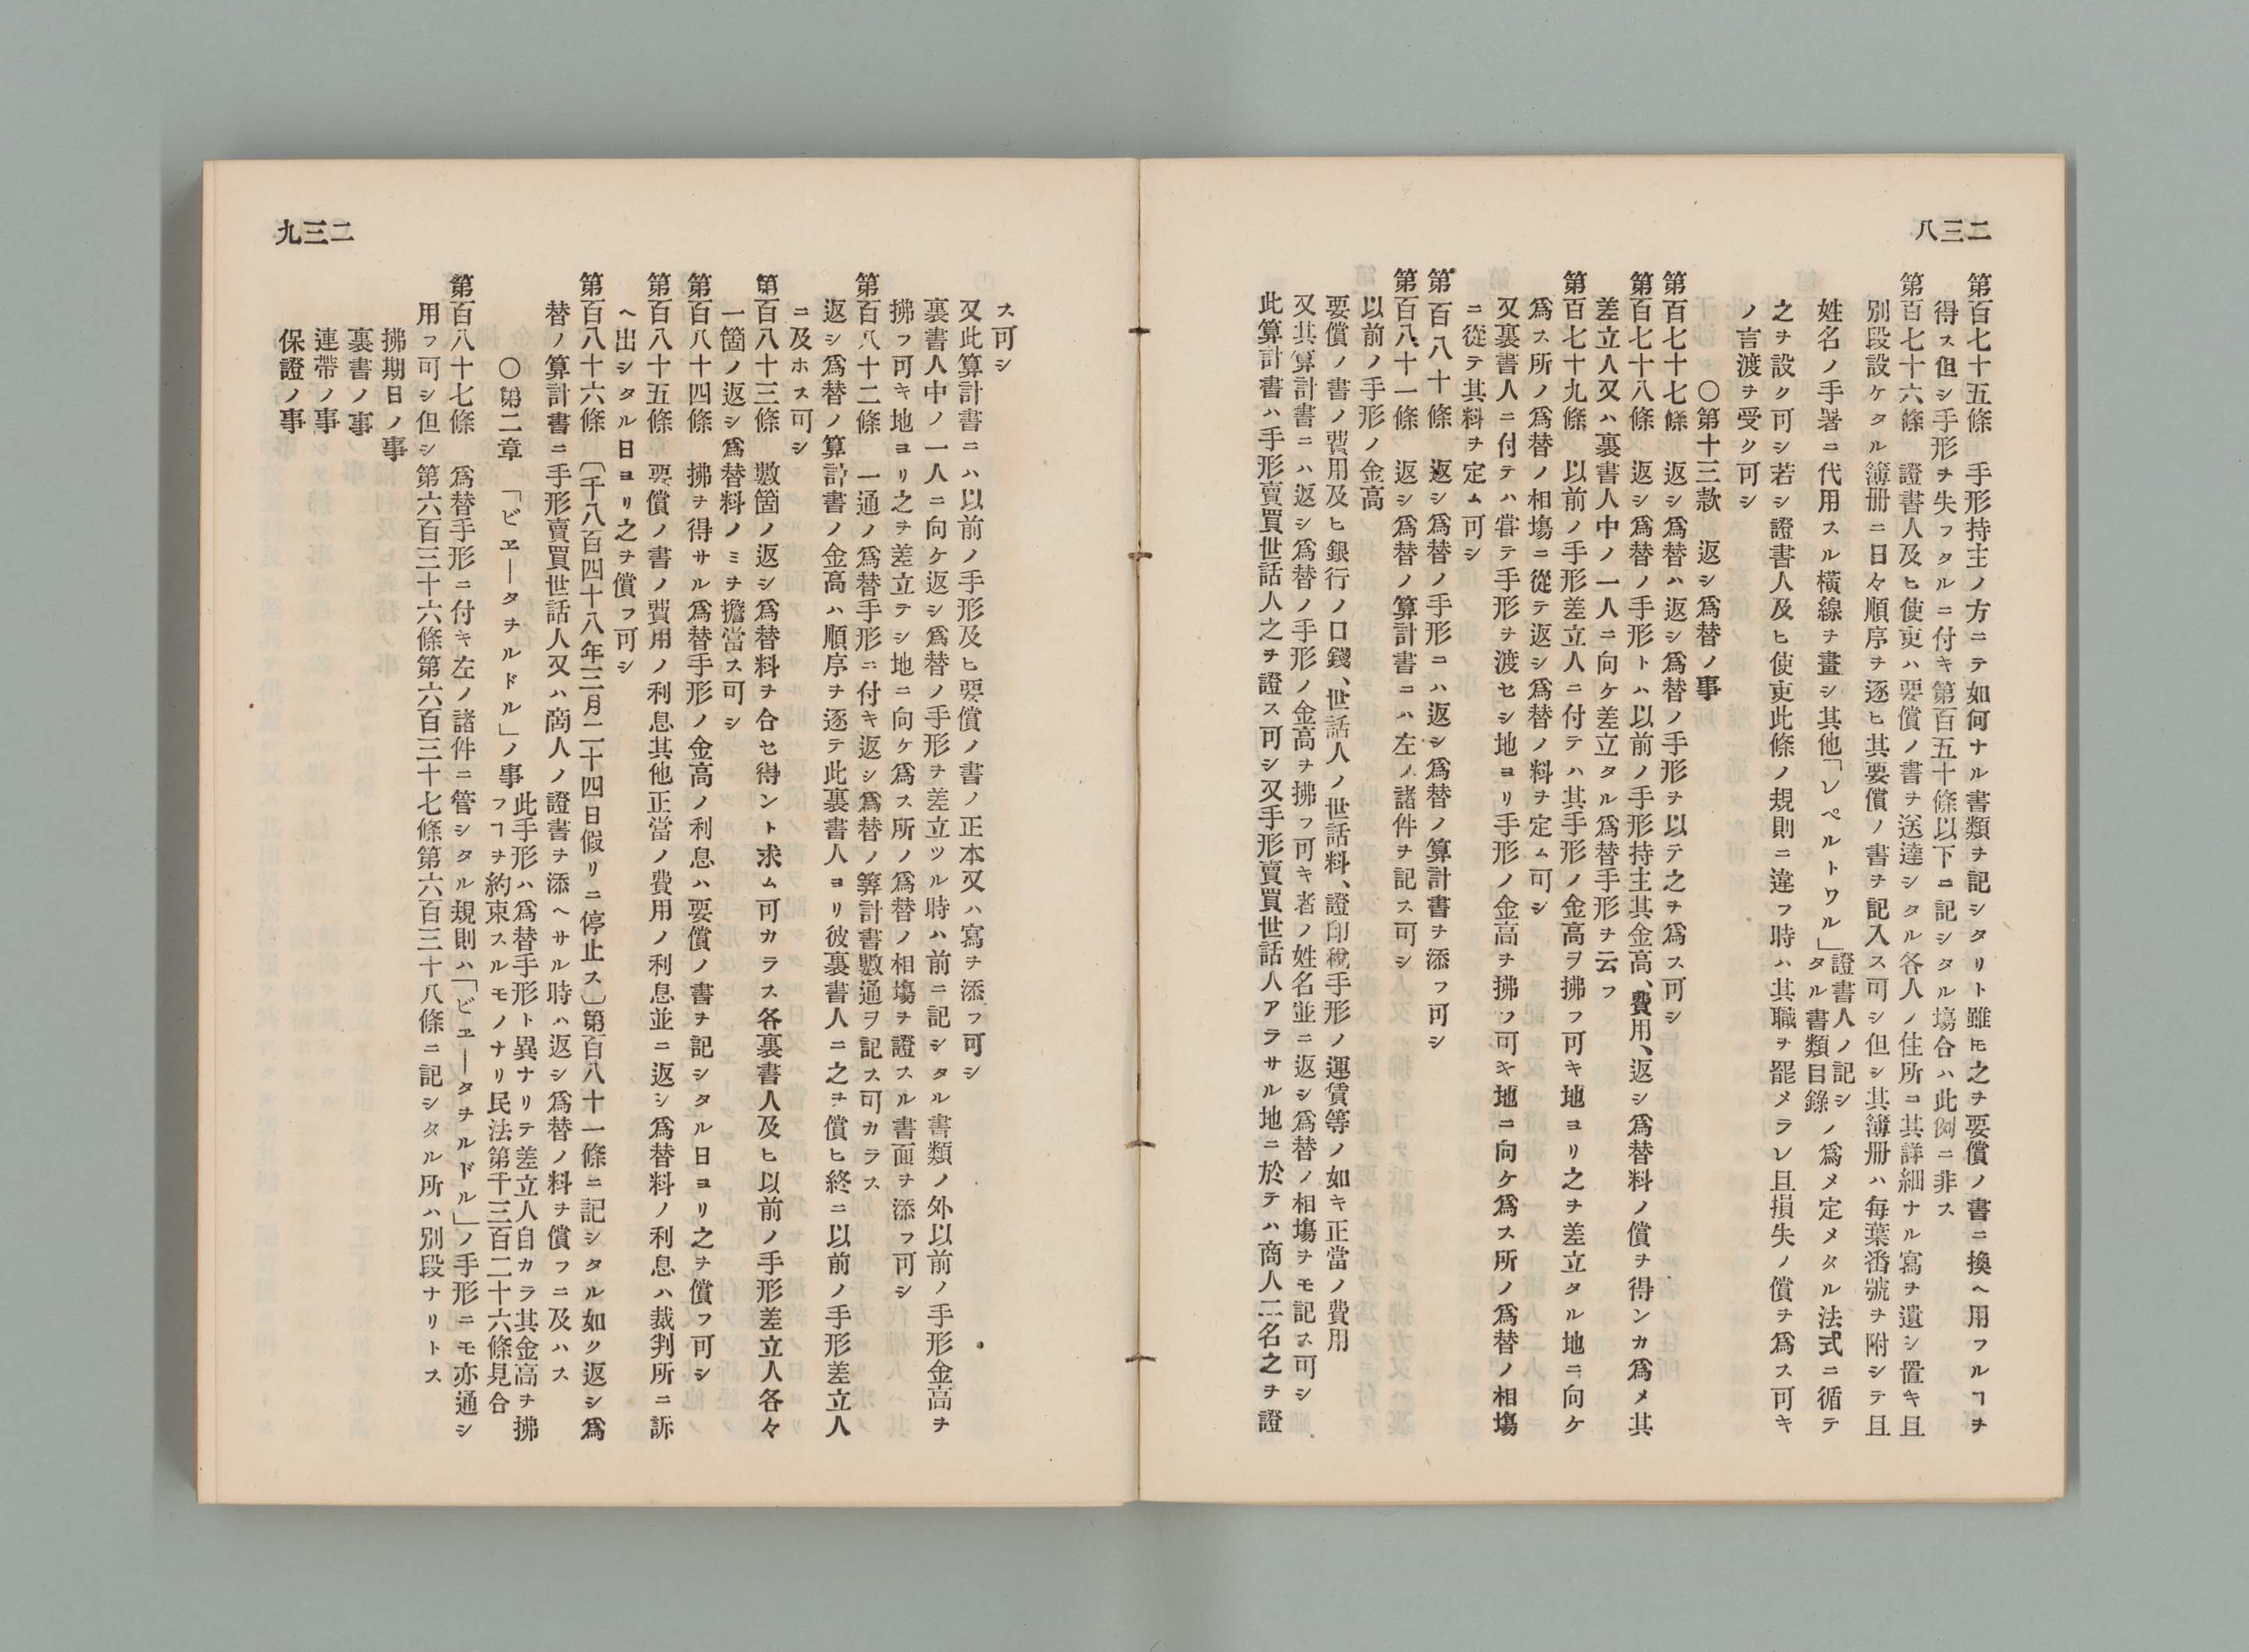 二三八
第百七十五條　手形持主ノ方ニテ如何ナル書類ヲ記シタリト雖𪜈之ヲ要償ノ書ニ換ヘ用フルヿヲ
得ス但シ手形ヲ失フタルニ付キ第百五十條以下ニ記シタル塲合ハ此例ニ非ス
第百七十六條　證書人及ヒ使吏ハ要償ノ書ヲ送達シタル各人ノ住所ニ其詳細ナル寫ヲ遺シ置キ且
別段設ケタル簿册ニ日々順序ヲ逐ヒ其要償ノ書ヲ記入ス可シ但シ其簿册ハ每葉番號ヲ附シテ且
姓名ノ手署ニ代用スル橫線ヲ畫シ其他「レペルトワル」證書人ノ記シタル書類目錄ノ爲メ定メタル法式ニ循テ
之ヲ設ク可シ若シ證書人及ヒ使吏此條ノ規則ニ違フ時ハ其職ヲ罷メラレ且損失ノ償ヲ爲ス可キ
ノ言渡ヲ受ク可シ
〇第十三款　返シ爲替ノ事
第百七十七條　返シ爲替ハ返シ爲替ノ手形ヲ以テ之ヲ爲ス可シ
第百七十八條　返シ爲替ノ手形トハ以前ノ手形持主其金高、費用、返シ爲替料ノ償ヲ得ンカ爲メ其
差立人又ハ裏書人中ノ一人ニ向ケ差立タル爲替手形ヲ云フ
第百七十九條　以前ノ手形差立人ニ付テハ其手形ノ金高ヲ拂フ可キ地ヨリ之ヲ差立タル地ニ向ケ
爲ス所ノ爲替ノ相塲ニ從テ返シ爲替ノ料ヲ定ム可シ
又裏書人ニ付テハ甞テ手形ヲ渡セシ地ヨリ手形ノ金高ヲ拂フ可キ地ニ向ケ爲ス所ノ爲替ノ相塲
ニ從テ其料ヲ定ム可シ
第百八十條　返シ爲替ノ手形ニハ返シ爲替ノ算計書ヲ添フ可シ
第百八十一條　返シ爲替ノ算計書ニハ左ノ諸件ヲ記ス可シ
以前ノ手形ノ金高
要償ノ書ノ費用及ヒ銀行ノ口錢、世話人ノ世話料、證印稅手形ノ運賃等ノ如キ正當ノ費用
又其算計書ニハ返シ爲替ノ手形ノ金高ヲ拂フ可キ者ノ姓名並ニ返シ爲替ノ相塲ヲモ記ス可シ
此算計書ハ手形賣買世話人之ヲ證ス可シ又手形賣買世話人アラサル地ニ於テハ商人二名之ヲ證
二三九
ス可シ
又此算計書ニハ以前ノ手形及ヒ要償ノ書ノ正本又ハ寫ヲ添フ可シ
裏書人中ノ一人ニ向ケ返シ爲替ノ手形ヲ差立ツル時ハ前ニ記シタル書類ノ外以前ノ手形金高ヲ
拂フ可キ地ヨリ之ヲ差立テシ地ニ向ケ爲ス所ノ爲替ノ相塲ヲ證スル書面ヲ添フ可シ
第百八十二條　一通ノ爲替手形ニ付キ返シ爲替ノ算計書數通ヲ記ス可カラス
返シ爲替ノ算計書ノ金高ハ順序ヲ逐テ此裏書人ヨリ彼裏書人ニ之ヲ償ヒ終ニ以前ノ手形差立人
ニ及ホス可シ
第百八十三條　數箇ノ返シ爲替料ヲ合セ得ント求ム可カラス各裏書人及ヒ以前ノ手形差立人各々
一箇ノ返シ爲替料ノミヲ擔當ス可シ
第百八十四條　拂ヲ得サル爲替手形ノ金高ノ利息ハ要償ノ書ヲ記シタル日ヨリ之ヲ償フ可シ
第百八十五條　要償ノ書ノ費用ノ利息其他正當ノ費用ノ利息並ニ返シ爲替料ノ利息ハ裁判所ニ訴
ヘ出シタル日ヨリ之ヲ償フ可シ
第百八十六條　〔千八百四十八年三月二十四日假リニ停止ス〕第百八十一條ニ記シタル如ク返シ爲
替ノ算計書ニ手形賣買世話人又ハ商人ノ證書ヲ添ヘサル時ハ返シ爲替ノ料ヲ償フニ及ハス
〇第二章　「ビヱータヲルドル」ノ事　此手形ハ爲替手形ト異ナリテ差立人自カラ其金高ヲ拂フヿヲ約束スルモノナリ民法第千三百二十六條見合
第百八十七條　爲替手形ニ付キ左ノ諸件ニ管シタル規則ハ「ビヱータヲルドル」ノ手形ニモ亦通シ
用フ可シ但シ第六百三十六條第六百三十七條第六百三十八條ニ記シタル所ハ別段ナリトス
拂期日ノ事
裏書ノ事
連帶ノ事
保證ノ事